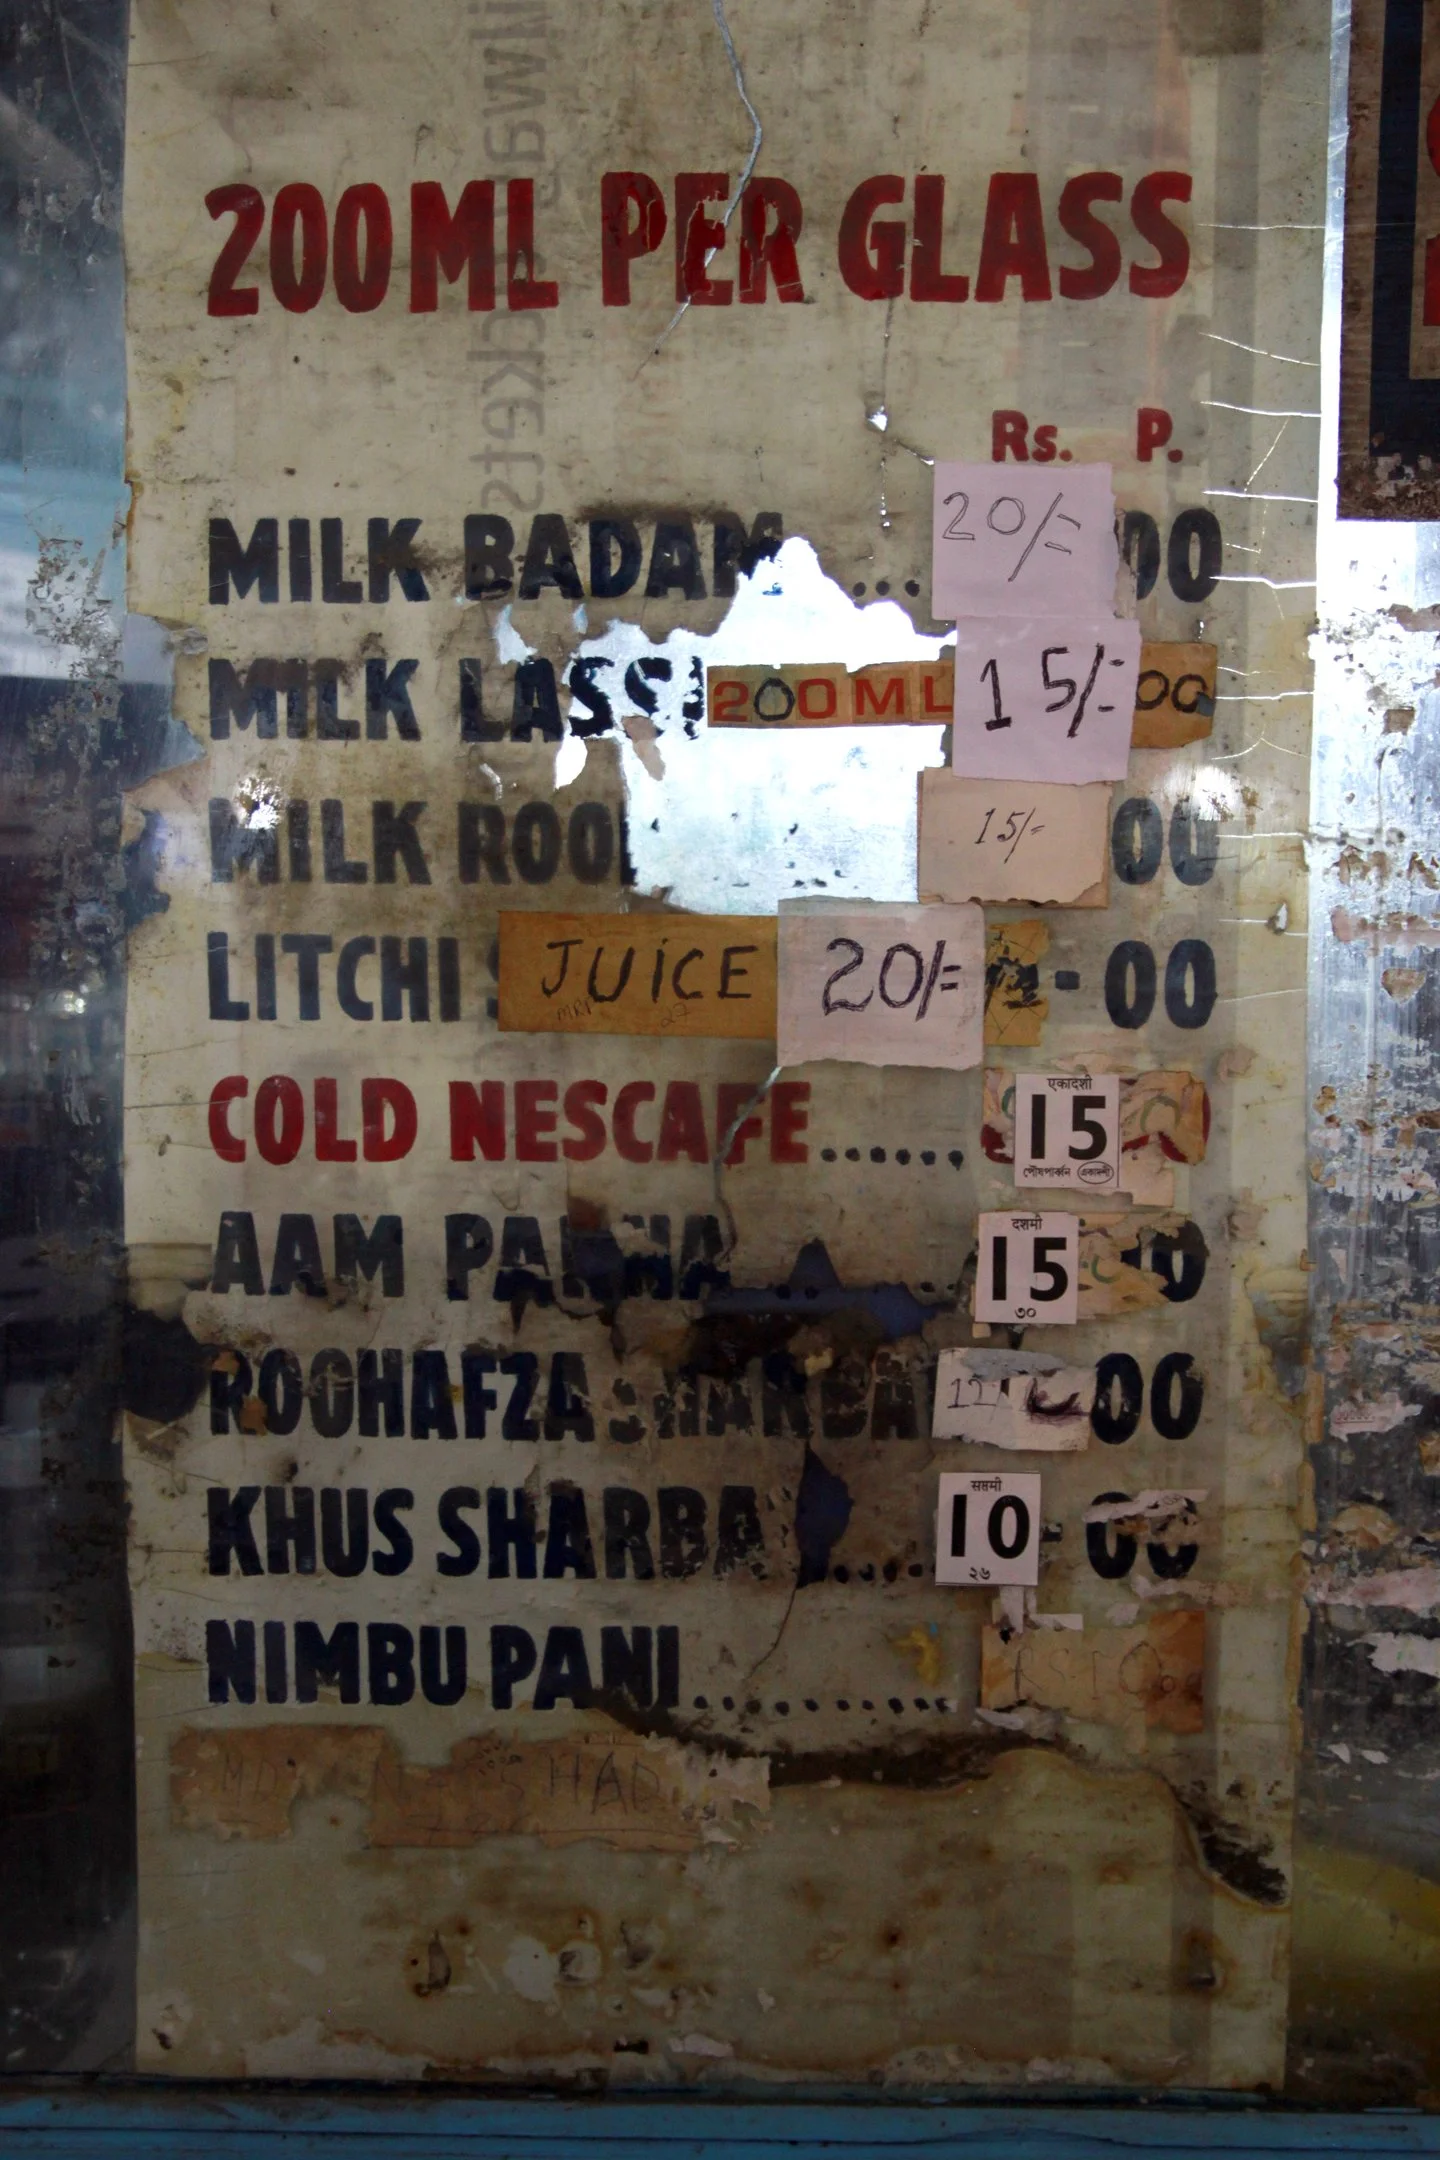 200ML PER GLASS
Rs. P.
MILK BADAM ... 20/= 00
MILK LASSI 200ML 15/= 00
MILK ROO 15/- 00
LITCHI JUICE 20/= - 00
COLD NESCAFE...... एकादशी 15 পৌষপার্বন একাদশী
AAM PANNA दशमी 15 ৩০
ROOHAFZA 12 00
KHUS SHARBA .... सप्तमी 10 ২৬ - 00
NIMBU PANI .......... RS 10